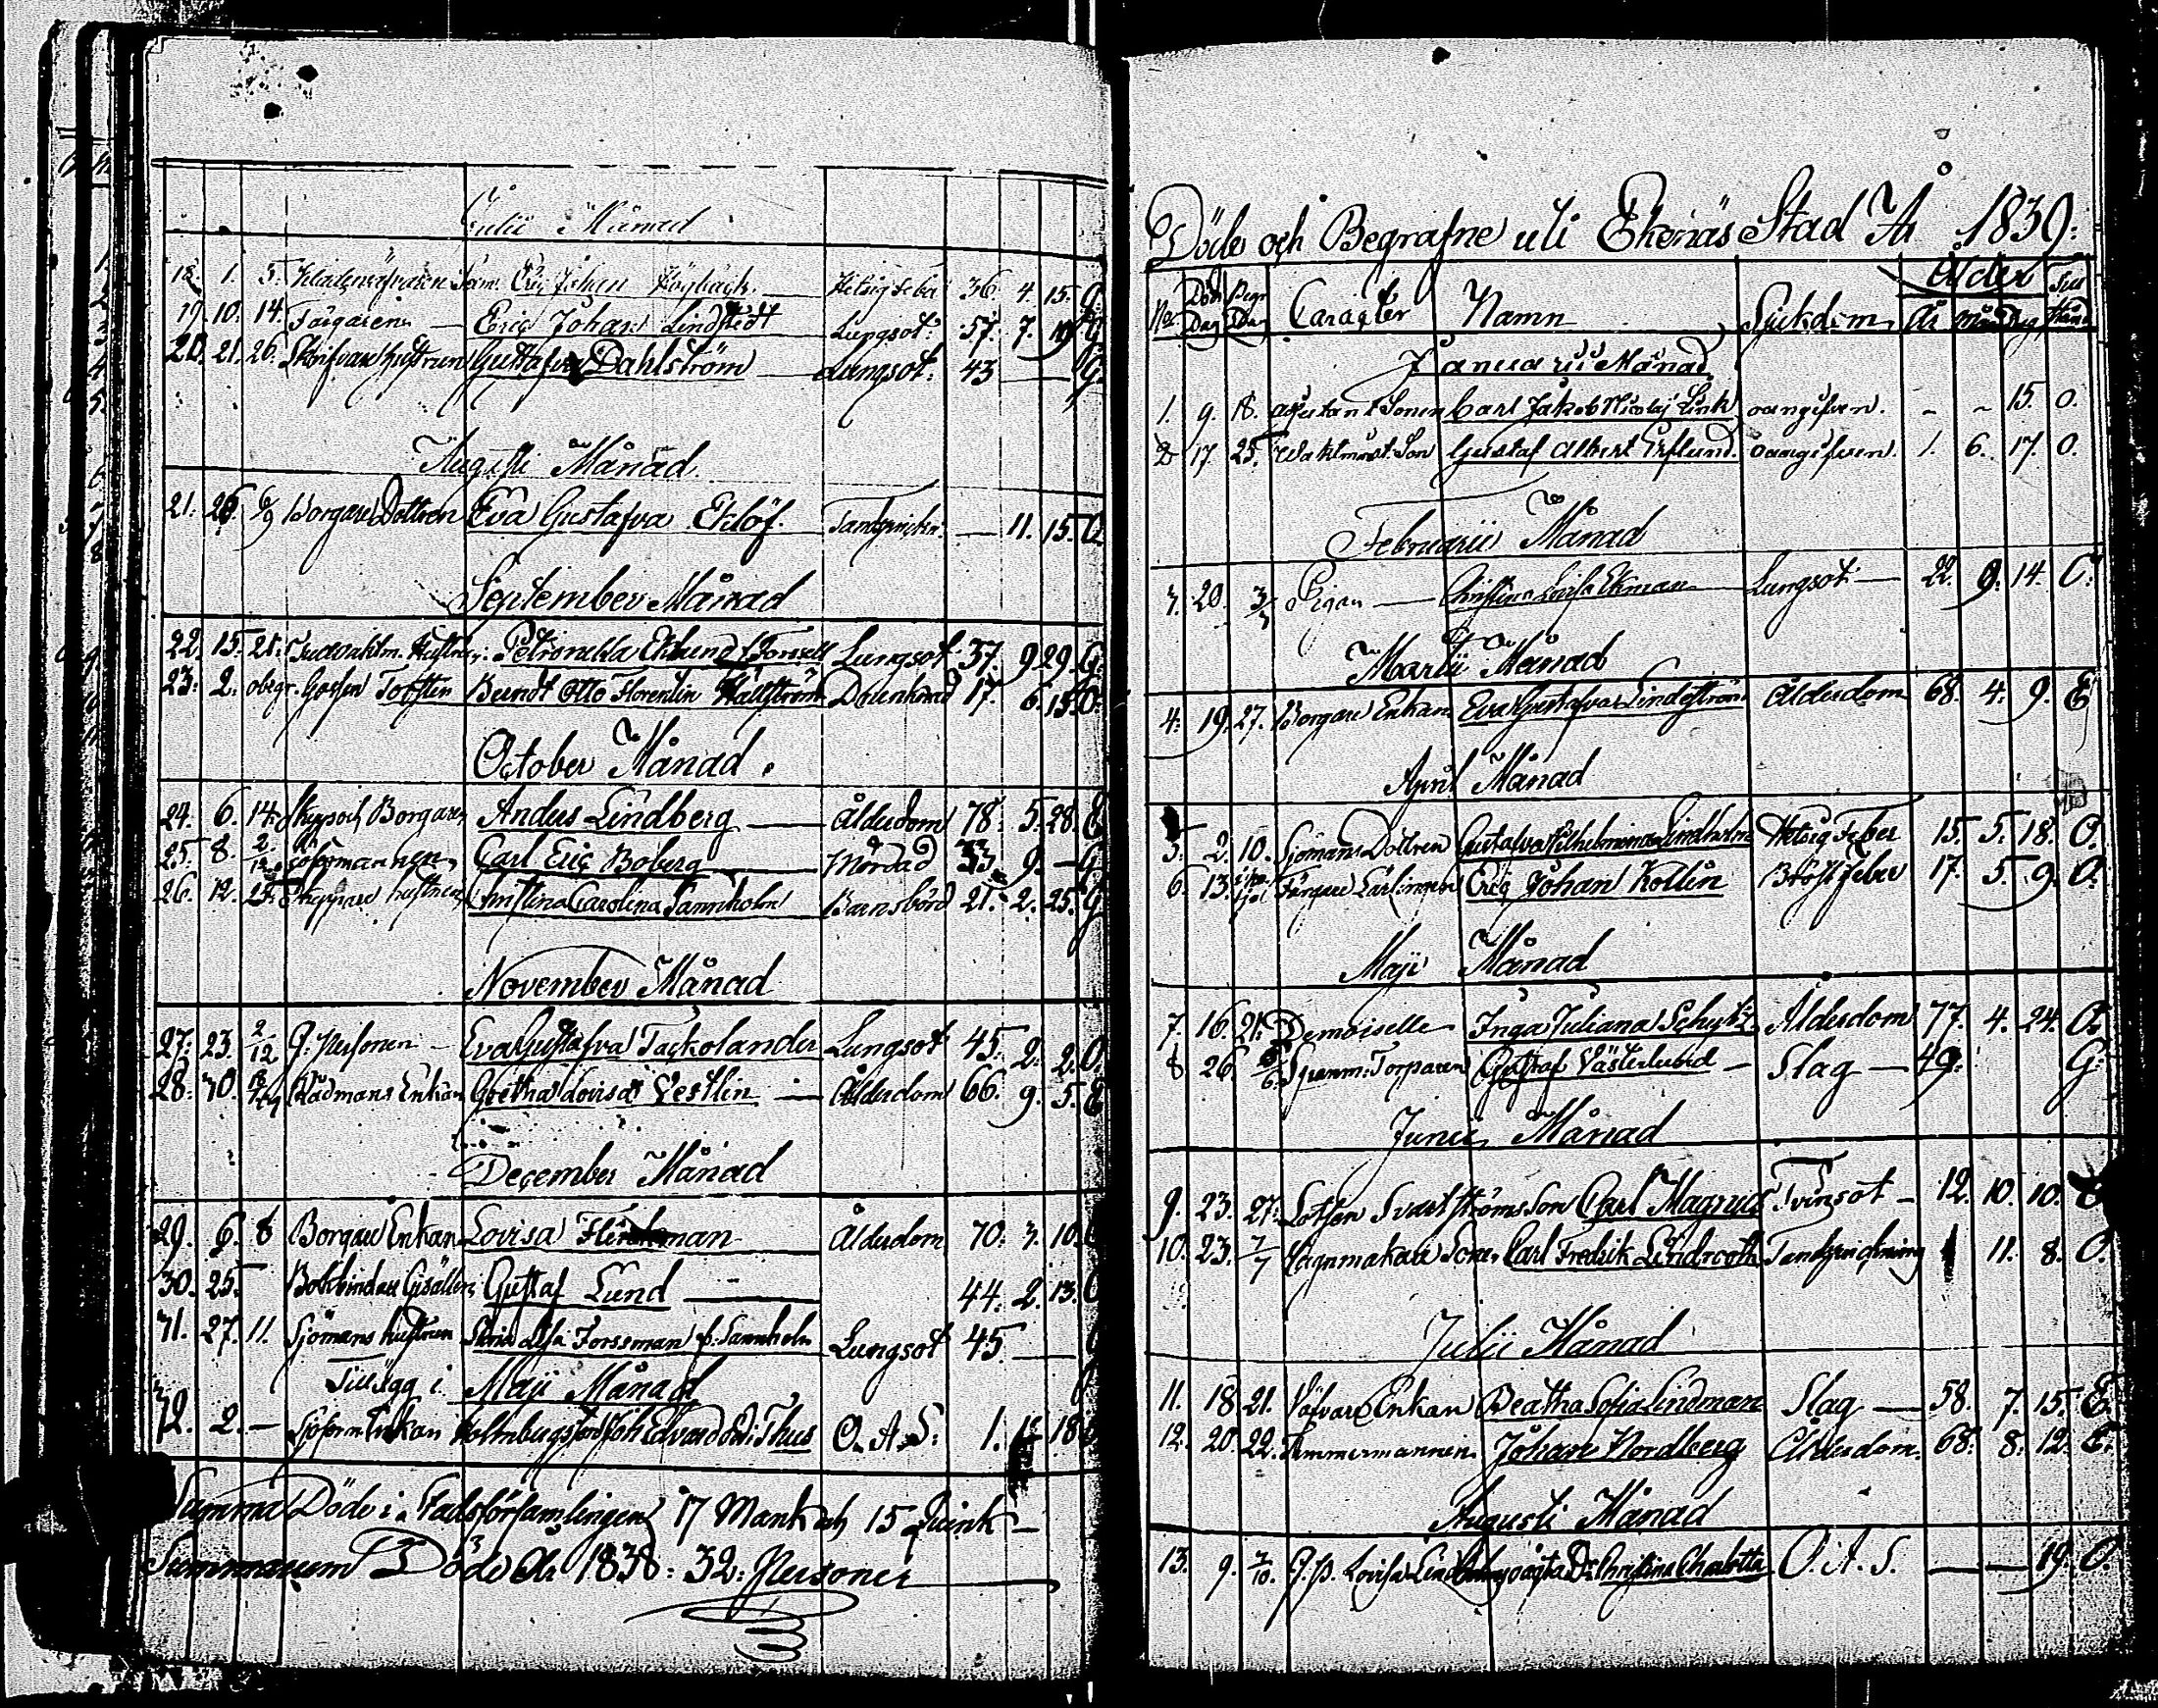 Julii Månad
18. 1. 5. Eric Johan Högback Hetsig feber 36. 4. 15. G.
19. 10. 14. Färgaren — Eric Johan Lindstedt Lungsot. 57. 7. G.
20. 21. 26. hustrun Gustafva Dahlström — Lungsot. 43 — G.
Augusti Månad
21. 26. 6/9 Borgare Dottren Eva Gustafva Eklöf. — 11. 15. O.
September Månad
22. 15. 21. Hustru Petronella Eklund f. Forsell Lungsot 37. 9. 29. G.
23. 2. obegr. Gossen Torsten Berndt Otto Florentin Hällström 17. 6. 15. O.
October Månad.
24. 6. 14. Skepp och Borgaren Anders Lindberg — Ålderdom 78. 5. 28. E
25. 8. 2/12 Sjöförmannen Carl Eric Boberg — Mördad 33 9. — G.
26. 12. 25. Skeppare hustrun Christina Carolina Sannholm Barnsbörd 21. 2. 25. G
November Månad
27. 23. 2/12 Q. Personen — Eva Gustafva Tackolander Lungsot 45. 2. 2. O.
28. 30. Rådmans Enkan Gretha Lovisa Vestlin — Ålderdom 66. 9. 5. E
December Månad
29. 6. 8 Borgare Enkan Lovisa Ålderdom 70. 3. 10.
30. 25. Bokbindare Gesällen Gustaf Lund — 44. 2. 13.
31. 27. 11. Sjömans hustrun Forssman f. Sannholm Lungsot 45 —
Tillägg i Maji Månad
32. 2. — Enkan Holmbergs Joh Edvard O. A. S. 1. 18
Summa Döde i Stadsförsamlingen 17 Mank och 15 Quink —
Summarum Döde År 1838: 32: Personer
Döde och Begrafne uti Ekenäs Stad År 1839:
No Död Dag Begr Dag Caracter Namn Sjukdom Ålder År Mån Dag
Januarii Månad
1. 9. 18. Adjutant Sonen Carl Jakob Nicolaj Link oangifven. - - 15. O.
2 17. 25. Waktmäst. Son Gustaf Albert oangifven. 1. 6. 17. O.
Februarii Månad
3. 20. 3/3 Pigan — Christina Lovisa Ekman Lungsot — 22. 9. 14. O.
Martii Månad
4. 19. 27. Borgare Enkan Eva Gustafva Lindström Ålderdom 68. 4. 9. E
April Månad
5. 2. 10. Sjömans Dottren Gustafva Wilhelmina Lindholm Hetsig Feber 15. 5. 18. O.
6. 13. Färgare Lärlingen Eric Johan Kollin Bröstfeber 17. 5. 9. O.
Maji Månad
7. 16. 21. Demoiselle Inga Juliana Schultz Ålderdom 77. 4. 24. O.
8 26 Torparen Gustaf Västerlund — Slag — 49. G.
Junii Månad
9. 23. 27. Lotsen Svartströms Son Carl Magnus Tvinsot — 12. 10. 10.
10. 23. 7/7 Vagnmakare Sonen Carl Fredrik Lindrooth Tandsprickning 11. 8. O.
Julii Månad
11. 18. 21. Väfvare Enkan Beatha Sofia Lindman Slag — 58. 7. 15. E.
12. 20. 22. Timmermannen Johan Nordberg Ålderdom. 68. 8. 12. E.
Augusti Månad
13. 9. Q. P. Lovisa oägta Dr. Christina Charlotta O. A. S. — — 19. O.